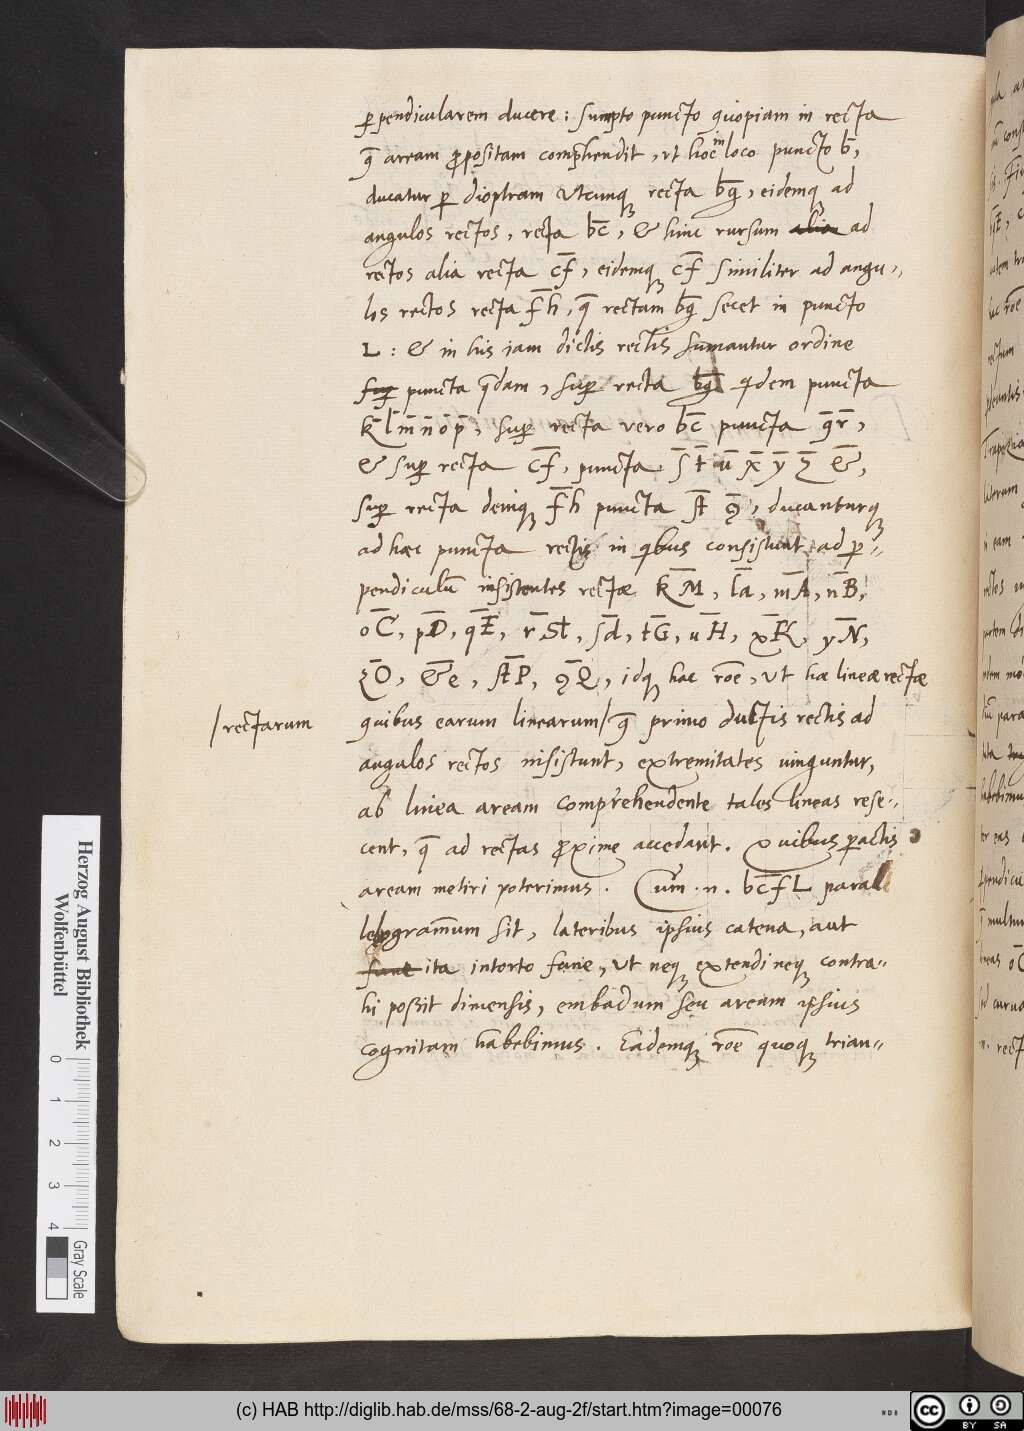 ꝑpendicularem ducere : sumpto puncto quopiam in recta
q̄ aream ꝓpositam comp̄hendit, ut hoc in loco puncto b̄,
ducatur ꝑ dioptram utcunqꝫ recta b̄g, eidemqꝫ ad
angulos rectos, recta b̄c, & hinc rursum alia ad
rectos alia recta c̄f, eidemqꝫ c̄f similiter ad angu-
los rectos recta f̄h, q̄ rectam b̄g secet in puncto
L : & in his iam dictis rectis sumantur ordine
puncta q̄dam, suꝑ recta b̄g qdem puncta
k̄ l̄ m̄ n̄ ō p̄, suꝑ recta vero b̄c puncta q̄ r̄,
& suꝑ recta c̄f, puncta s̄ t̄ ū x̄ ȳ z̄ &̄,
suꝑ recta deniqꝫ f̄h puncta ꝯ̄, ducanturqꝫ
ad haec puncta rectis in qibus consistunt ad ꝑ-
pendiculū insistentes rectae k̄M, l̄a, m̄A, n̄B,
ōC, p̄D, q̄E, r̄St, s̄d, t̄G, ūH, x̄K, ȳN,
z̄O, &̄e, P̄, ꝯ̄Q, idqꝫ hac rōe, ut hae lineae rectae
/ rectarum
quibus earum linearum/ q̄ primo ductis rectis ad
angulos rectos insistunt, extremitates iunguntur,
ab linea aream comprehendente tales lineas rese-
cent, q̄ ad rectas ꝓxime accedant. Quibus ꝑactis
aream metiri poterimus. Cum .n. b̄c̄f̄L paral
lelogram̄um sit, lateribus ipsius catena, aut
fune ita intorto fune, ut neqꝫ extendi neqꝫ contra-
hi possit dimensis, embadum seu aream ipsius
cognitam habebimus. Eademqꝫ rōe quoqꝫ trian-
Herzog August Bibliothek
Wolfenbüttel
0 1 2 3 4
Gray Scale
(c) HAB http://diglib.hab.de/mss/68-2-aug-2f/start.htm?image=00076
cc BY SA